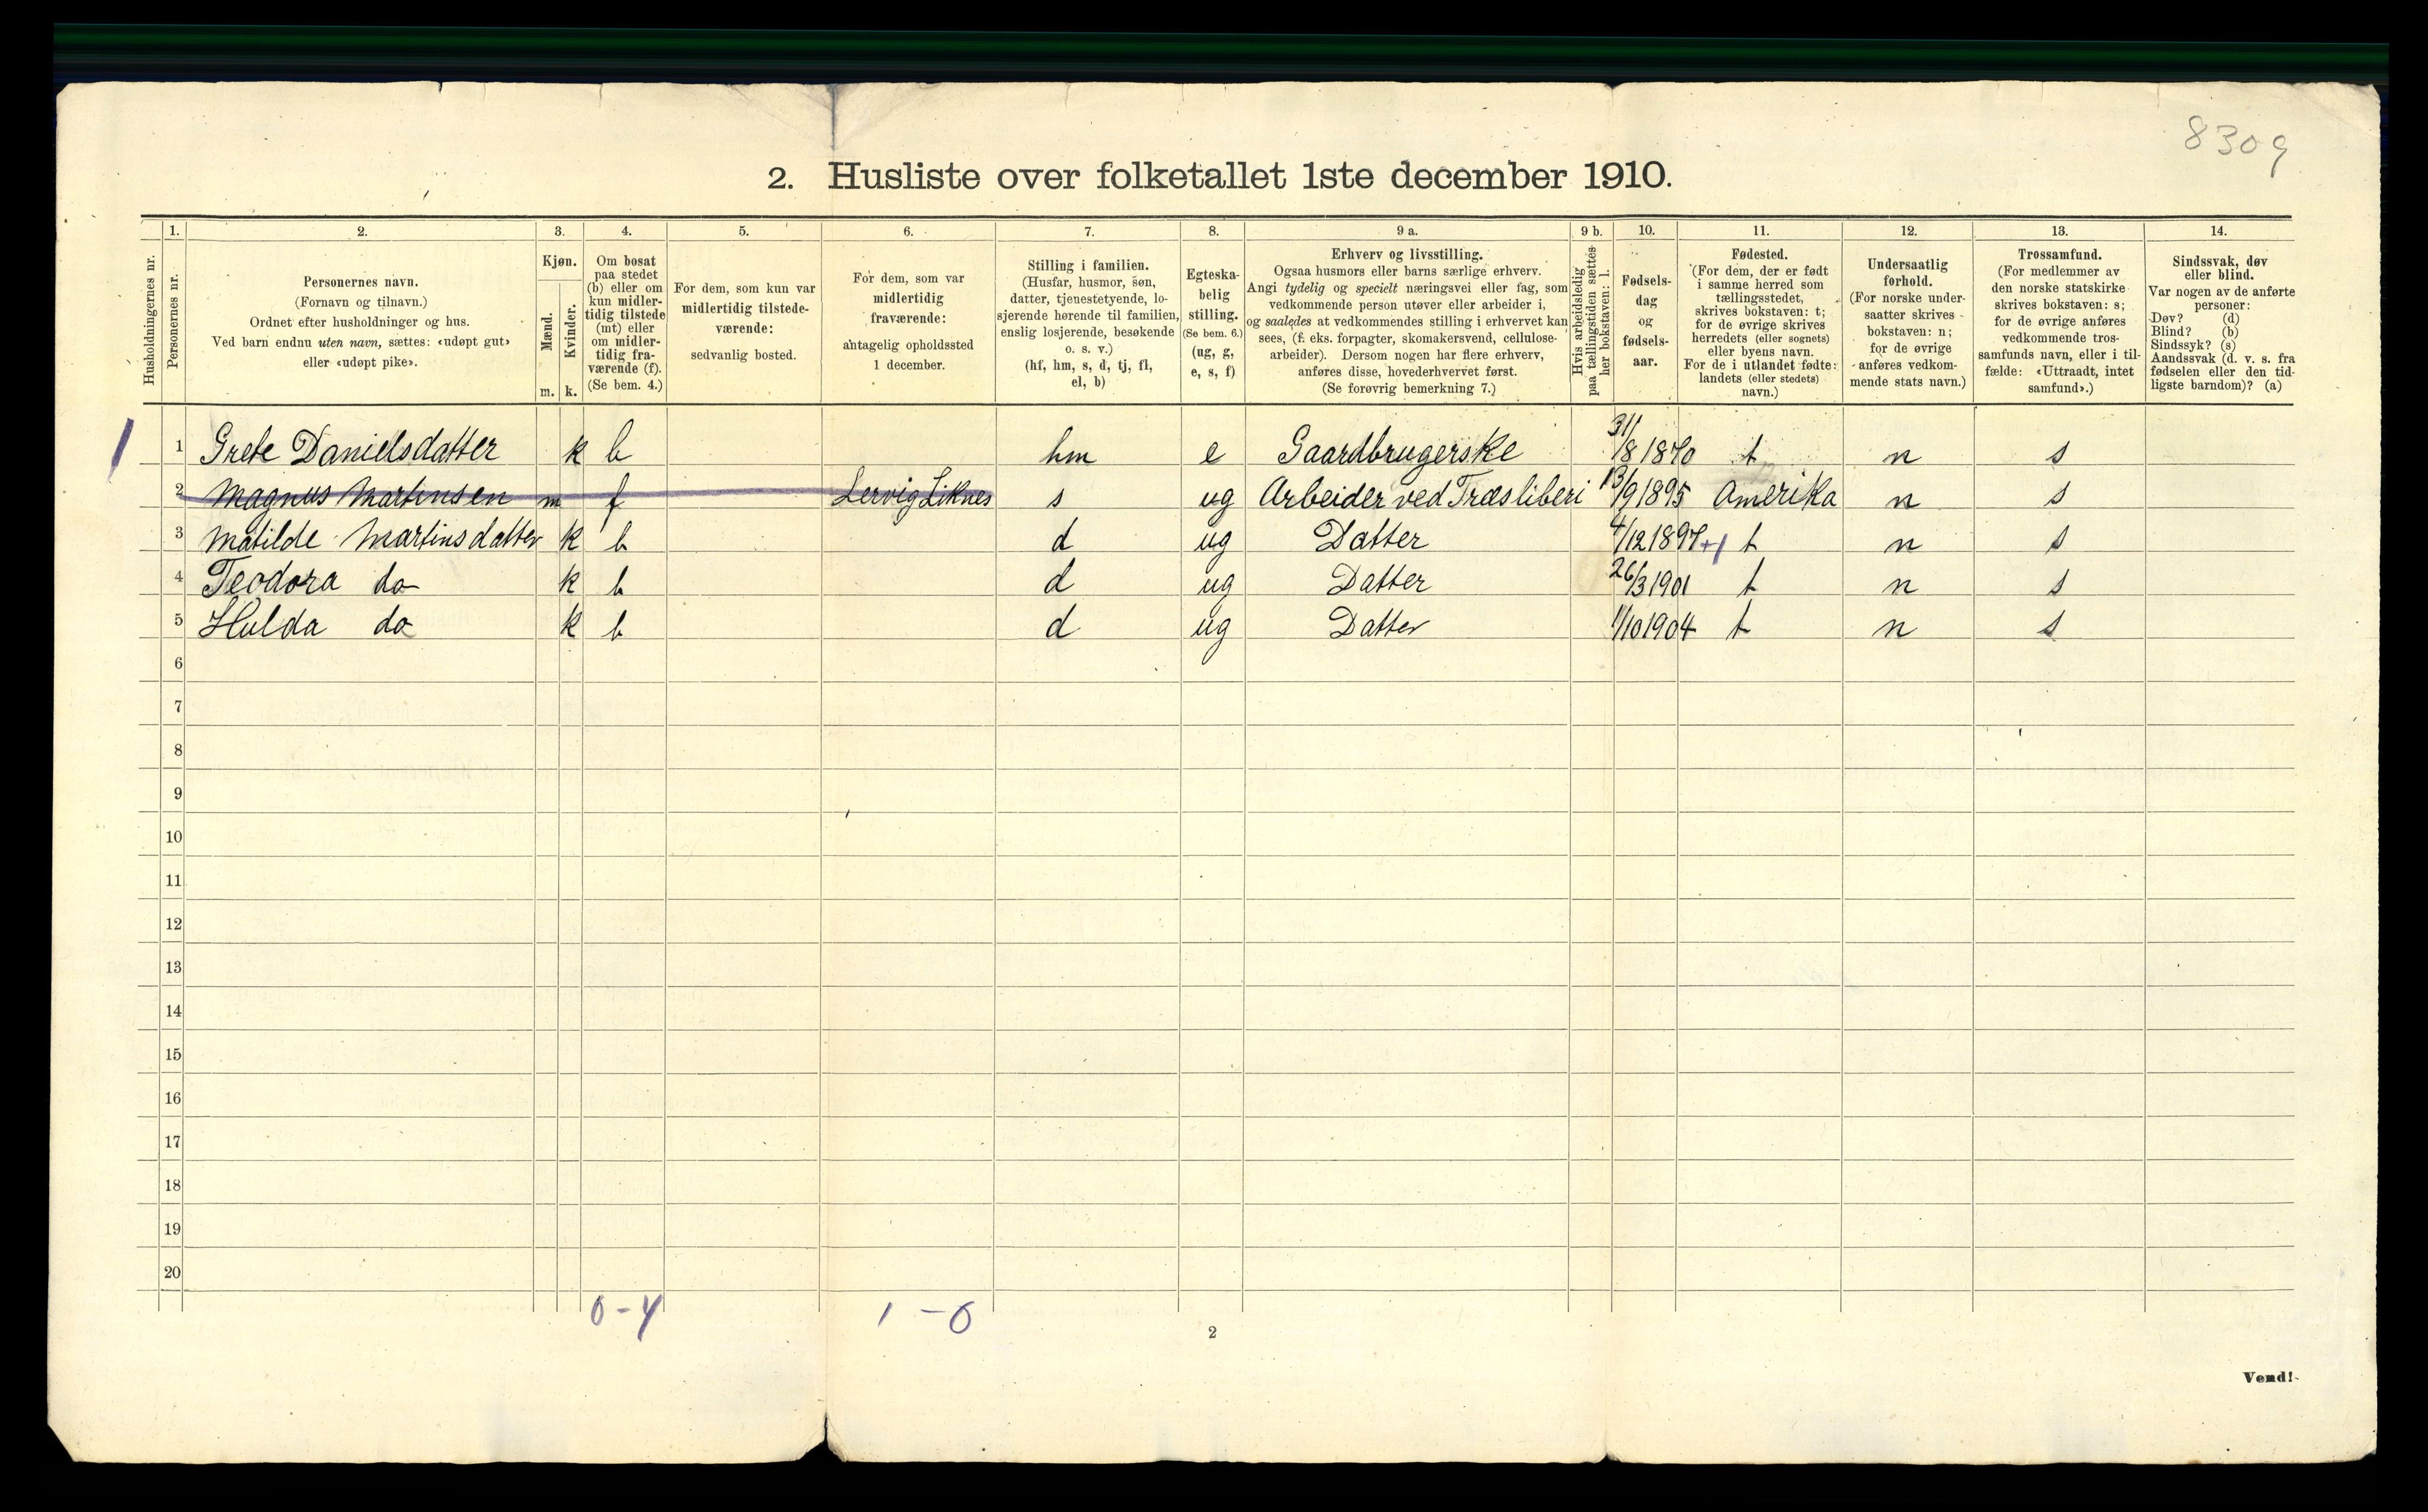 8309
2. Husliste over folketallet 1ste december 1910.
Husholdningernes nr.
1.
Personernes nr.
2.
Personernes navn.
(Fornavn og tilnavn.)
Ordnet efter husholdninger og hus.
Ved barn endnu uten navn, sættes: «udøpt gut»
eller «udøpt pike».
3.
Kjøn.
Mænd.
Kvinder.
m. k.
4.
Om bosat
paa stedet
(b) eller om
kun midler-
tidig tilstede
(mt) eller
om midler-
tidig fra-
værende (f).
(Se bem. 4.)
5.
For dem, som kun var
midlertidig tilstede-
værende:
sedvanlig bosted.
6.
For dem, som var
midlertidig
fraværende:
antagelig opholdssted
1 december.
7.
Stilling i familien.
(Husfar, husmor, søn,
datter, tjenestetyende, lo-
sjerende hørende til familien,
enslig losjerende, besøkende
o. s. v.)
(hf, hm, s, d, tj, fl,
el, b)
8.
Egteska-
belig
stilling.
(Se bem. 6.)
(ug, g,
e, s, f)
9 a.
Erhverv og livsstilling.
Ogsaa husmors eller barns særlige erhverv.
Angi tydelig og specielt næringsvei eller fag, som
vedkommende person utøver eller arbeider i,
og saaledes at vedkommendes stilling i erhvervet kan
sees, (f. eks. forpagter, skomakersvend, cellulose-
arbeider). Dersom nogen har flere erhverv,
anføres disse, hovederhvervet først.
(Se forøvrig bemerkning 7.)
9 b.
Hvis arbeidsledig
paa tællingstiden sættes
her bokstaven: l.
10.
Fødsels-
dag
og
fødsels-
aar.
11.
Fødested.
(For dem, der er født
i samme herred som
tællingsstedet,
skrives bokstaven: t;
for de øvrige skrives
herredets (eller sognets)
eller byens navn.
For de i utlandet fødte:
landets (eller stedets)
navn.)
12.
Undersaatlig
forhold.
(For norske under-
saatter skrives
bokstaven: n;
for de øvrige
anføres vedkom-
mende stats navn.)
13.
Trossamfund.
(For medlemmer av
den norske statskirke
skrives bokstaven: s;
for de øvrige anføres
vedkommende tros-
samfunds navn, eller i til-
fælde: «Uttraadt, intet
samfund».)
14.
Sindssvak, døv
eller blind.
Var nogen av de anførte
personer:
Døv? (d)
Blind? (b)
Sindssyk? (s)
Aandssvak (d. v. s. fra
fødselen eller den tid-
ligste barndom)? (a)
1 1 Grete Danielsdatter k b hm e Gaardbrugerske 31/8 1870 t n s
2 Magnus Martinsen m f Lervig Liknes s ug Arbeider ved Træsliberi 13/9 1895 Amerika n s
3 Matilde Martinsdatter k b d ug Datter 4/12 1897 +1 t n s
4 Teodora do k b d ug Datter 26/3 1901 t n s
5 Hulda do k b d ug Datter 1/10 1904 t n s
6
7
8
9
10
11
12
13
14
15
16
17
18
19
20
0-4 1-0
2
Vend!